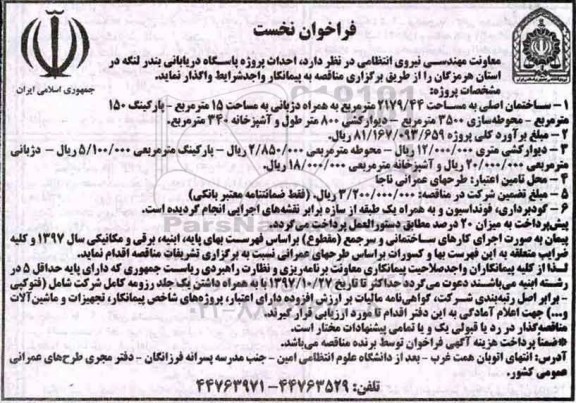 فراخوان نخست
جمهوری اسلامی ایران
معاونت مهندسی نیروی انتظامی در نظر دارد، احداث پروژه پاسگاه دریابانی بندر لنگه در
استان هرمزگان را از طریق برگزاری مناقصه به پیمانکار واجدشرایط واگذار نماید.
مشخصات پروژه:
۱ - ساختمان اصلی به مساحت ۲۱۷۹/۴۴ مترمربع به همراه دژبانی به مساحت ۱۵ مترمربع - پارکینگ ۱۵۰
مترمربع - محوطه‌سازی ۳۵۰۰ مترمربع - دیوارکشی ۸۰۰ متر طول و آشپزخانه ۳۴۰ مترمربع.
۲ - مبلغ برآورد کلی پروژه ۸۱/۱۶۷/۰۹۳/۶۵۹ ریال.
۳ - دیوارکشی متری ۱۲/۰۰۰/۰۰۰ ریال - محوطه مترمربعی ۲/۸۵۰/۰۰۰ ریال - پارکینگ مترمربعی ۵/۱۰۰/۰۰۰ ریال - دژبانی
مترمربعی ۲۰/۰۰۰/۰۰۰ ریال و آشپزخانه مترمربعی ۱۸/۰۰۰/۰۰۰ ریال.
۴ - محل تامین اعتبار: طرحهای عمرانی ناجا
۵ - مبلغ تضمین شرکت در مناقصه: ۳/۲۰۰/۰۰۰/۰۰۰ ریال. (فقط ضمانتنامه معتبر بانکی)
۶ - گودبرداری، فونداسیون و به همراه یک طبقه از سازه برابر نقشه‌های اجرایی انجام گردیده است.
پیش‌پرداخت به میزان ۲۰ درصد مطابق دستورالعمل پرداخت می‌گردد.
پیمان به صورت اجرای کارهای ساختمانی و سرجمع (مقطوع) براساس فهرست بهای پایه، ابنیه، برقی و مکانیکی سال ۱۳۹۷ و کلیه
ضرایب متعلقه به این فهرست بها و کسورات براساس طرحهای عمرانی نسبت به برگزاری تشریفات مناقصه اقدام نماید.
لذا از کلیه پیمانکاران واجدصلاحیت پیمانکاری معاونت برنامه‌ریزی و نظارت راهبردی ریاست جمهوری که دارای پایه حداقل ۵ در
رشته ابنیه می‌باشند دعوت می‌گردد حداکثر تا تاریخ ۱۳۹۷/۱۰/۲۷ با به همراه داشتن یک جلد رزومه کامل شرکت شامل (فتوکپی
- برابر اصل رتبه‌بندی شرکت، گواهی‌نامه مالیات بر ارزش افزوده دارای اعتبار، پروژه‌های شاخص پیمانکار، تجهیزات و ماشین‌آلات
و...) جهت اعلام آمادگی به این دفتر اقدام تا مورد ارزیابی قرار گیرند.
مناقصه‌گذار در رد یا قبولی یک و یا تمامی پیشنهادات مختار است.
*ضمنا پرداخت هزینه آگهی فراخوان توسط برنده مناقصه می‌باشد.
آدرس: انتهای اتوبان همت غرب - بعد از دانشگاه علوم انتظامی امین - جنب مدرسه پسرانه فرزانگان - دفتر مجری طرح‌های عمرانی
عمومی کشور.
تلفن: ۴۴۷۶۳۵۲۹ - ۴۴۷۶۳۹۷۱